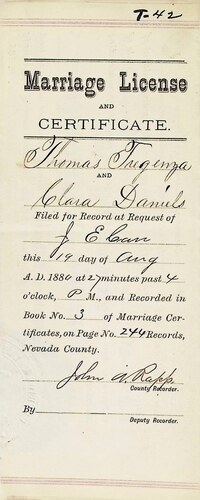 T-42
Marriage License
AND
CERTIFICATE.
Thomas Tregenza
AND
Clara Daniels
Filed for Record at Request of
J E Carr
this 19 day of Aug
A. D. 1880 at 27 minutes past 4
o'clock, P M., and Recorded in
Book No. 3 of Marriage Cer-
tificates, on Page No. 244 Records,
Nevada County.
John A. Rapp.
County Recorder.
By
Deputy Recorder.